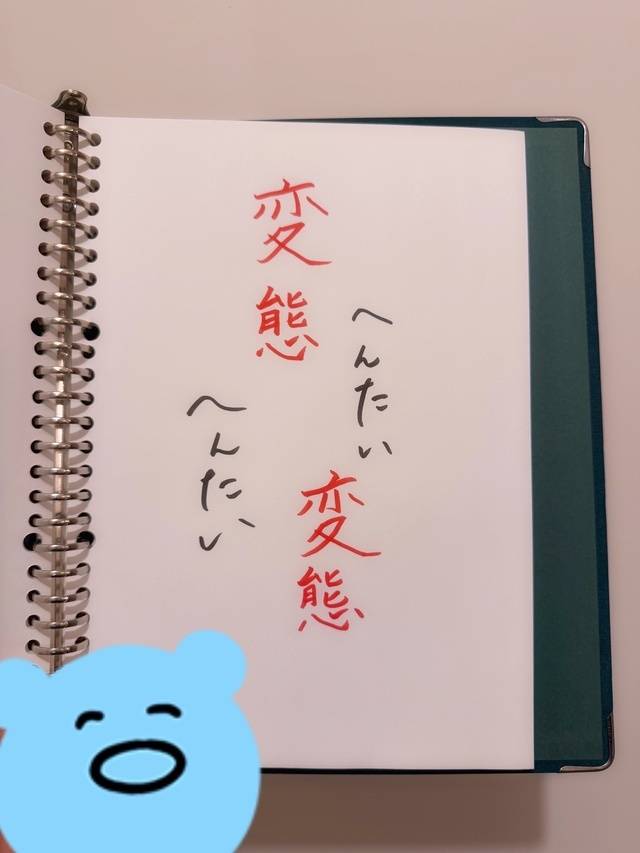 変態
へんたい
へんたい
変態